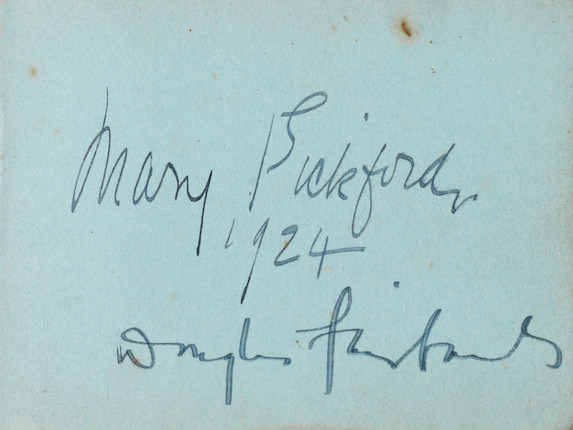 Mary Pickford
1924
Douglas Fairbanks